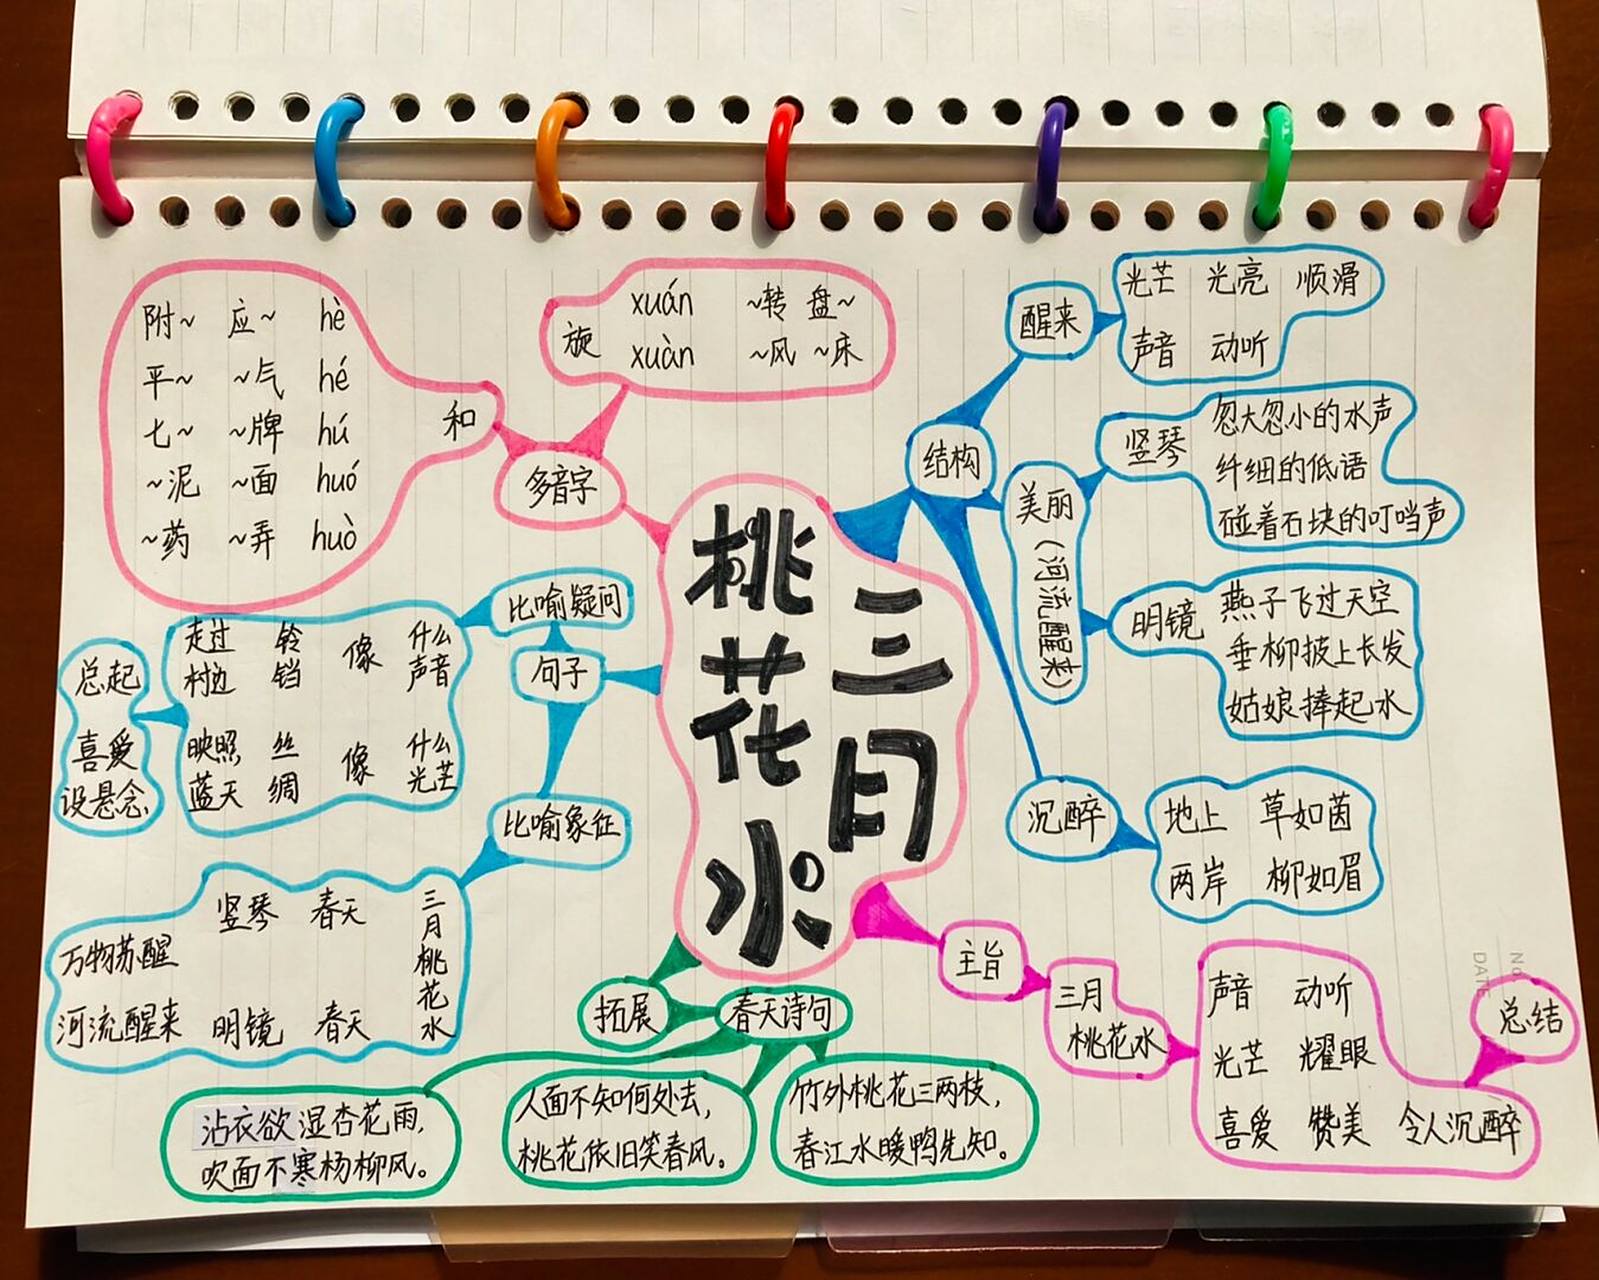 三月
桃花水
多音字
和
附~ 应~ hè
平~ ~气 hé
七~ ~牌 hú
~泥 ~面 huó
~药 ~弄 huò
旋
xuán ~转 盘~
xuàn ~风 ~床
句子
比喻疑问
走过 铃 像 什么
村边 铛 声音
映照 丝 像 什么
蓝天 绸 光芒
总起
喜爱
设悬念
比喻象征
竖琴 春天
万物苏醒
河流醒来 明镜 春天
三月桃花水
结构
醒来
光芒 光亮 顺滑
声音 动听
美丽(河流醒来)
竖琴
忽大忽小的水声
纤细的低语
碰着石块的叮当声
明镜
燕子飞过天空
垂柳披上长发
姑娘捧起水
沉醉
地上 草如茵
两岸 柳如眉
主旨
三月
桃花水
声音 动听
光芒 耀眼
喜爱 赞美 令人沉醉
总结
拓展
春天诗句
沾衣欲湿杏花雨,
吹面不寒杨柳风。
人面不知何处去,
桃花依旧笑春风。
竹外桃花三两枝,
春江水暖鸭先知。
No.
DATE